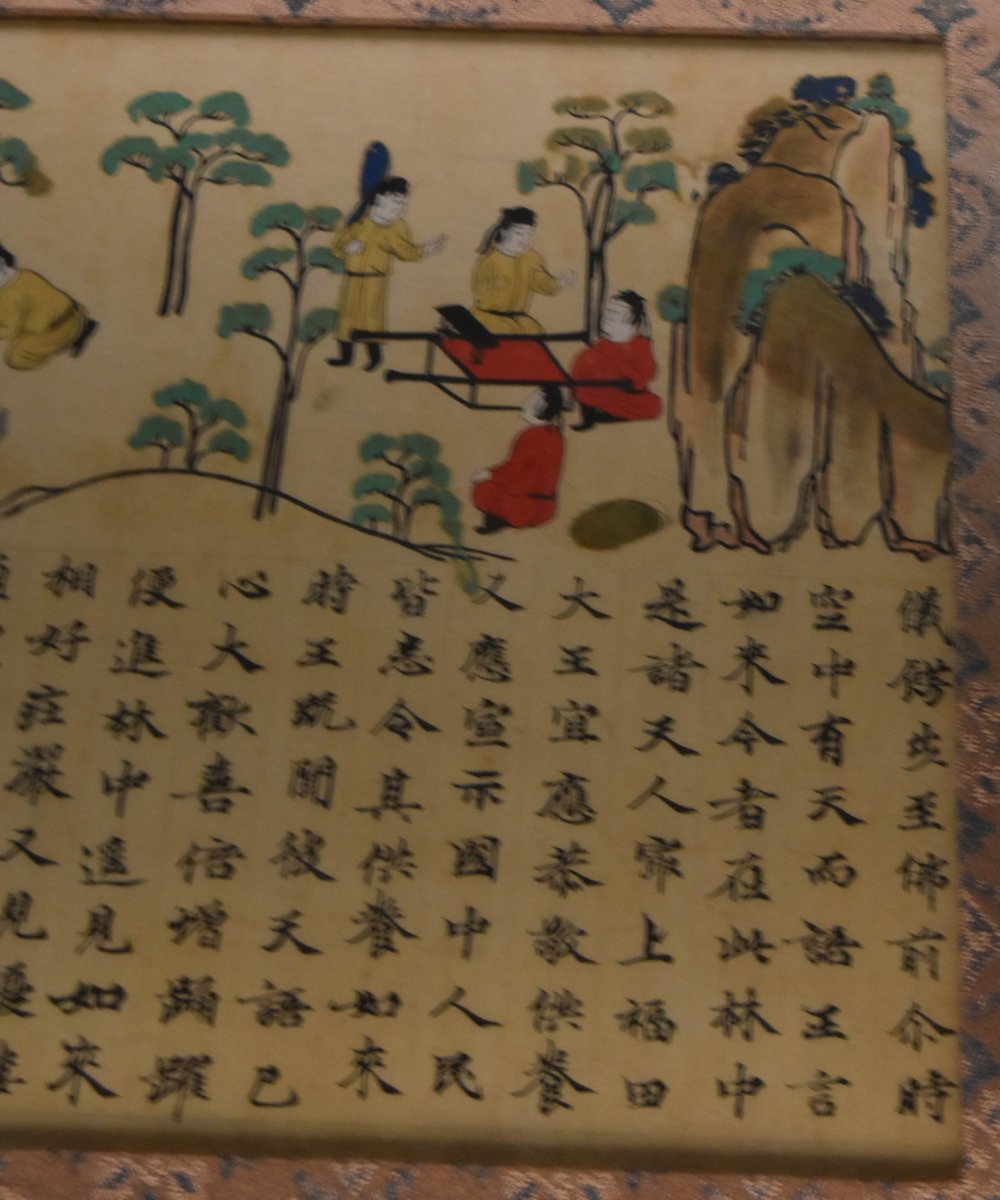 儀餝步至佛前尒時
空中有天而語王言
如來今者在此林中
是諸天人㝡上福田
大王宜應恭敬供養
又應宣示國中人民
皆悉令其供養如來
時王既聞彼天語已
心大歡喜倍增踊躍
便進林中遙見如來
相好庄嚴又見優